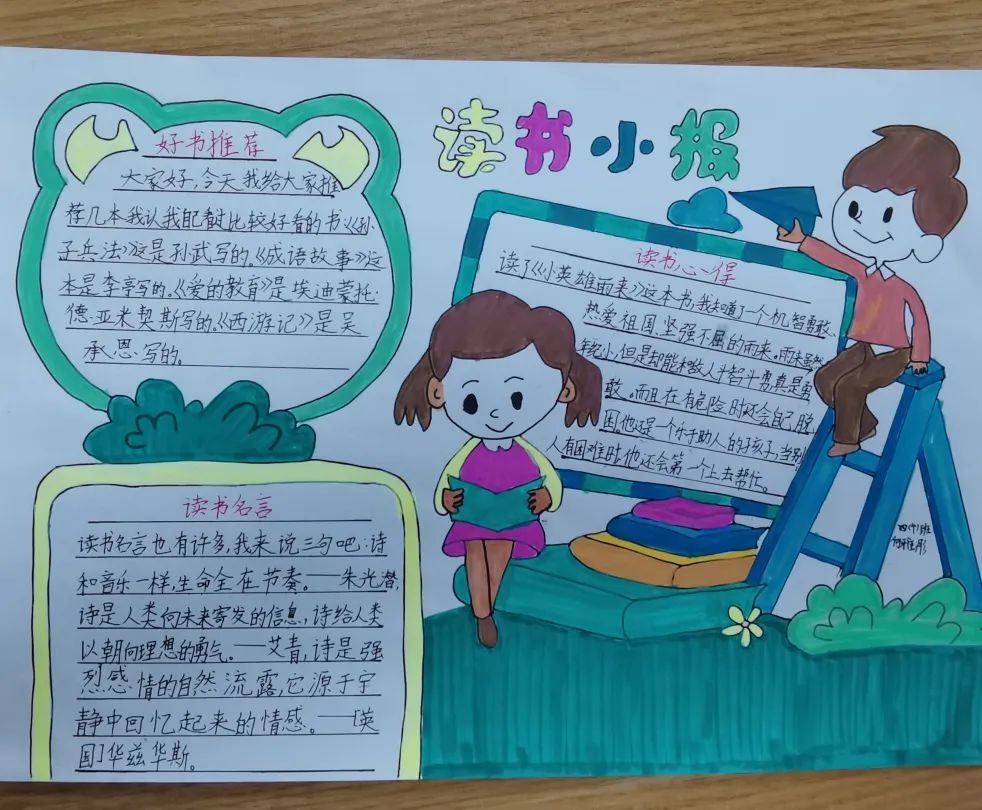 读书小报
好书推荐
大家好,今天我给大家推
荐几本我认我配看过比较好看的书《孙
子兵法》这是孙武写的。《成语故事》这
本是李亭写的。《爱的教育》是埃迪蒙托·
德·亚米契斯写的。《西游记》是吴
承恩写的。
读书心得
读了《小英雄雨来》这本书,我知道了一个机智勇敢、
热爱祖国、坚强不屈的雨来。雨来虽然
年纪小,但是却能和敌人斗智斗勇真是勇
敢。而且在有危险时还会自己脱
困。他还是一个乐于助人的孩子,当别
人有困难时他还会第一个上去帮忙。
读书名言
读书名言也有许多,我来说三句吧:诗
和音乐一样,生命全在节奏。——朱光潜,
诗是人类向未来寄发的信息,诗给人类
以朝向理想的勇气。——艾青,诗是强
烈感情的自然流露,它源于宁
静中回忆起来的情感。——[英
国]华兹华斯。
四(4)班